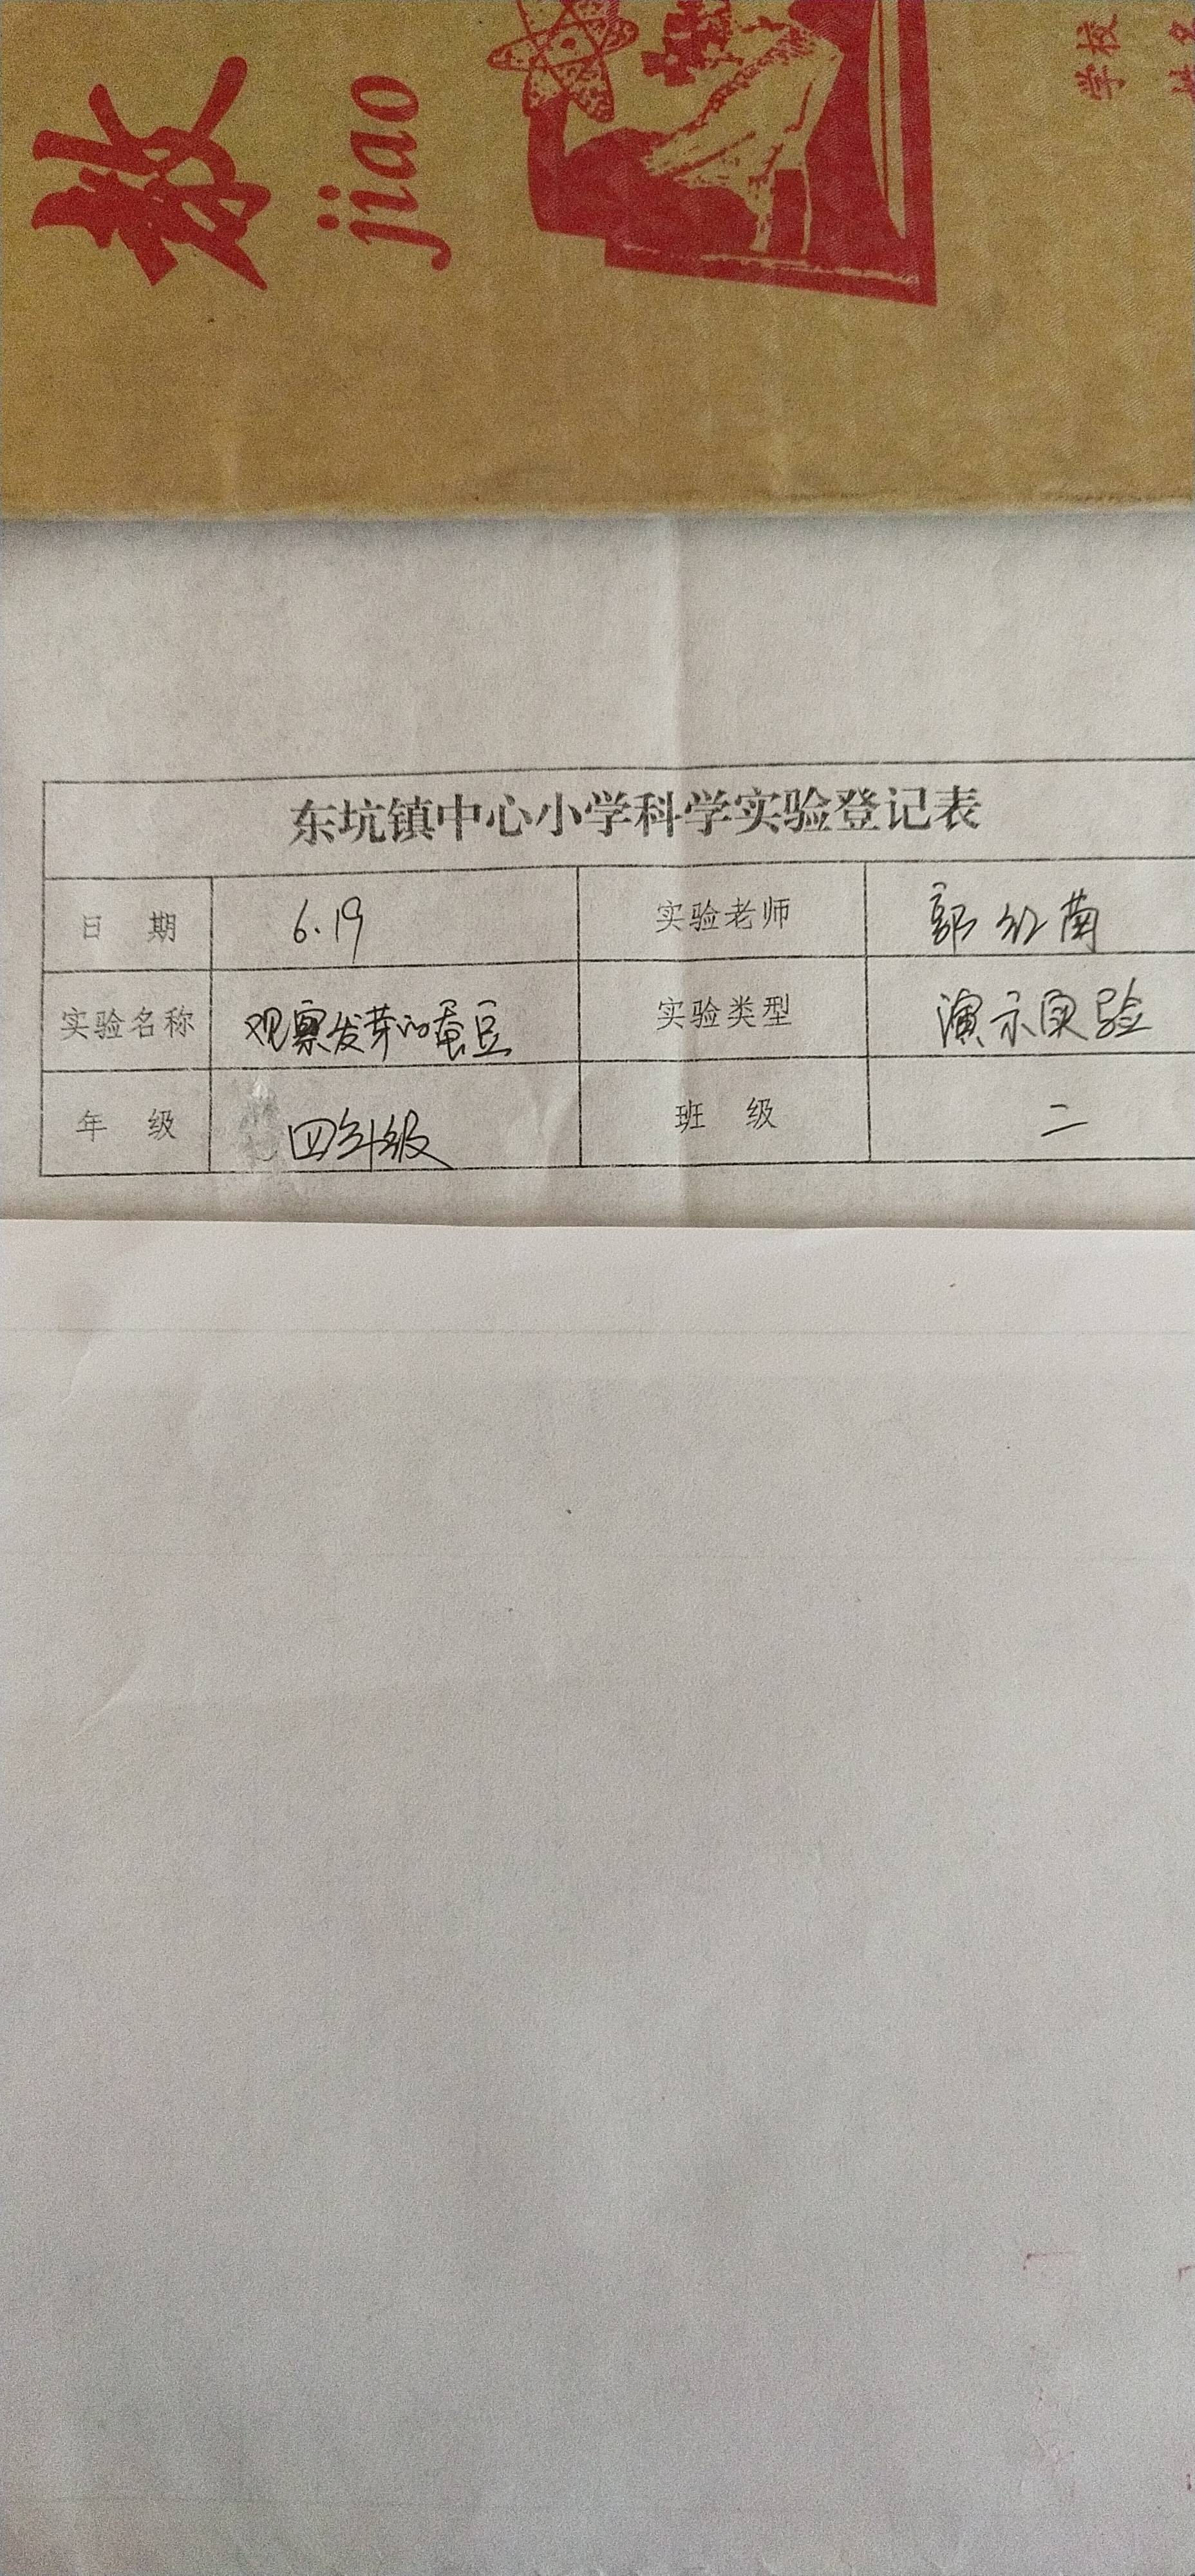 教
jiao
学校
姓名
东坑镇中心小学科学实验登记表
日 期 6.19 实验老师 郭红菊
实验名称 观察发芽的蚕豆 实验类型 演示实验
年 级 四年级 班 级 二